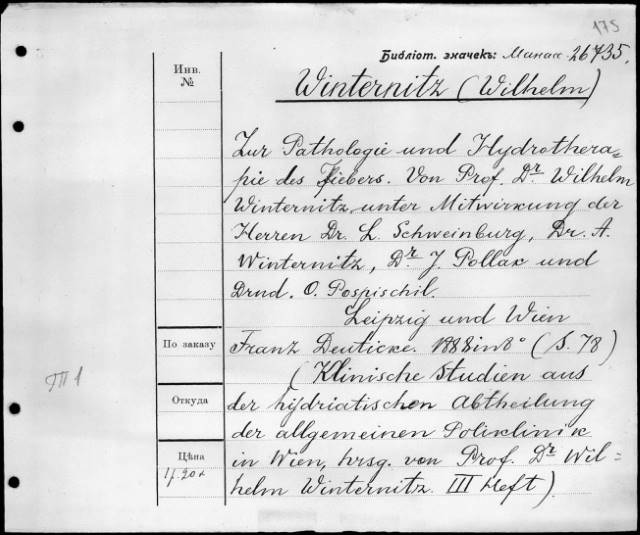 175
Библіот. значекъ: Минак 26435.
Инв.
№
Winternitz (Wilhelm)
Zur Pathologie und Hydrothera=
pie des Fiebers. Von Prof. Dr. Wilhelm
Winternitz, unter Mitwirkung der
Herren Dr. L. Schweinburg, Dr. A.
Winternitz, Dr. J. Pollak und
Drnd. O. Pospischil.
Leipzig und Wien
По заказу
Franz Deuticke. 1888 in 8° (S. 78)
(Klinische Studien aus
Откуда
der hydriatischen Abtheilung
der allgemeinen Poliklinik
Цѣна
in Wien, hrsg. von Prof. Dr. Wil=
helm Winternitz. III Heft).